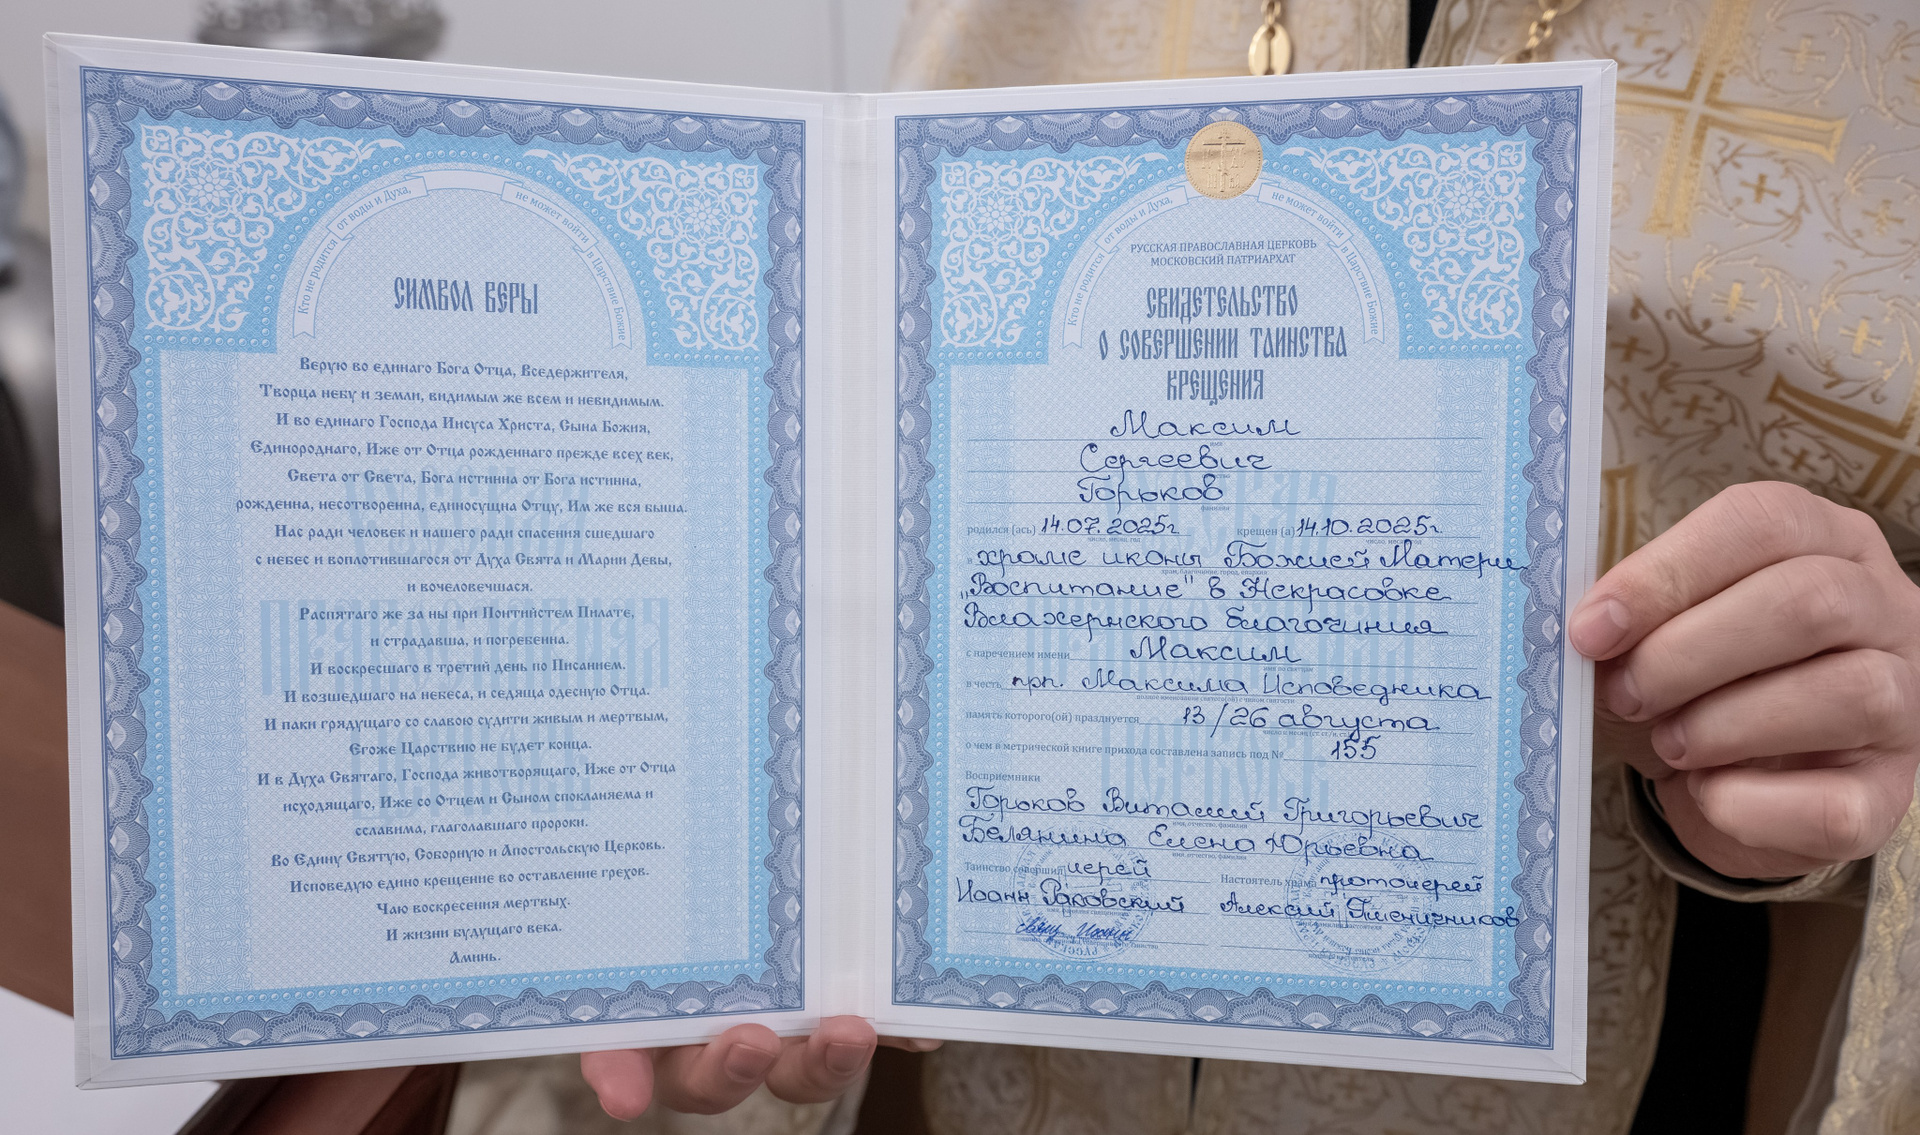 Кто не родится от воды и Духа, не может войти в Царствие Божие
СИМВОЛ ВЕРЫ
Верую во единаго Бога Отца, Вседержителя,
Творца небу и земли, видимым же всем и невидимым.
И во единаго Господа Иисуса Христа, Сына Божия,
Единороднаго, Иже от Отца рожденнаго прежде всех век,
Света от Света, Бога истинна от Бога истинна,
рожденна, несотворенна, единосущна Отцу, Им же вся быша.
Нас ради человек и нашего ради спасения сшедшаго
с небес и воплотившагося от Духа Свята и Марии Девы,
и вочеловечшася.
Распятаго же за ны при Понтийстем Пилате,
и страдавша, и погребенна.
И воскресшаго в третий день по Писанием.
И возшедшаго на небеса, и седяща одесную Отца.
И паки грядущаго со славою судити живым и мертвым,
Егоже Царствию не будет конца.
И в Духа Святаго, Господа животворящаго, Иже от Отца
исходящаго, Иже со Отцем и Сыном спокланяема и
сславима, глаголавшаго пророки.
Во Едину Святую, Соборную и Апостольскую Церковь.
Исповедую едино крещение во оставление грехов.
Чаю воскресения мертвых.
И жизни будущаго века.
Аминь.
Кто не родится от воды и Духа, не может войти в Царствие Божие
РУССКАЯ ПРАВОСЛАВНАЯ ЦЕРКОВЬ
МОСКОВСКИЙ ПАТРИАРХАТ
СВИДЕТЕЛЬСТВО
О СОВЕРШЕНИИ ТАИНСТВА
КРЕЩЕНИЯ
Максим
имя
Сергеевич
Горьков
фамилия
родился (ась) 14.07.2025г. крещен (а) 14.10.2025г.
число, месяц, год число, месяц, год
в храме иконы Божией Матери
храм, благочиние, город, епархия
"Воспитание" в Некрасовке
Влахернского благочиния
с наречением имени Максим
имя по святцам
в честь прп. Максима Исповедника
память которого(ой) празднуется 13/26 августа
о чем в метрической книге прихода составлена запись под № 155
Восприемники
Горьков Виталий Григорьевич
имя, отчество, фамилия
Белянина Елена Юрьевна
имя, отчество, фамилия
Таинство совершил иерей Настоятель храма протоиерей
Иоанн Раковский Алексий Пшеничников